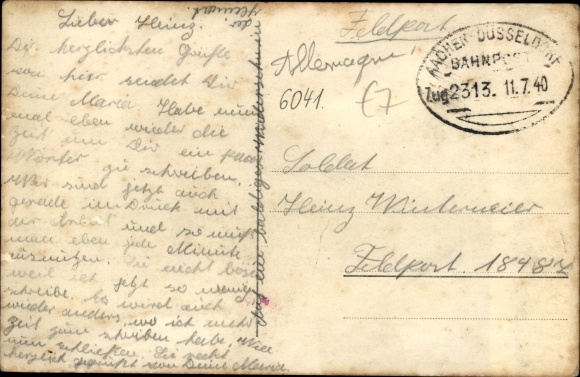 Lieber Heinz.
der
Heimat.
Die herzlichsten Grüße
von hier sendet Dir
Deine Maria. Habe nun
mal eben wieder die
Zeit um Dir ein paar
Wörter zu schreiben.
Wir sind jetzt auch
gerade im Druck mit
der Arbeit und so muß
man eben jede Minute
ausnützen. Sei nicht böse
weil ich jetzt so wenig
schreibe. Es wird auch
wieder anders, wo ich mehr
Zeit zum schreiben habe. Will
nun schließen. Sei recht
herzlich gegrüßt von Deine Maria
Auf ein baldiges Wiedersehen in
Feldpost
Allemagne
6041.
£7
AACHEN-DÜSSELDORF
BAHNPOST
Zug 2313. 11.7.40
Soldat
Heinz Wintermeier
Feldpost. 18487